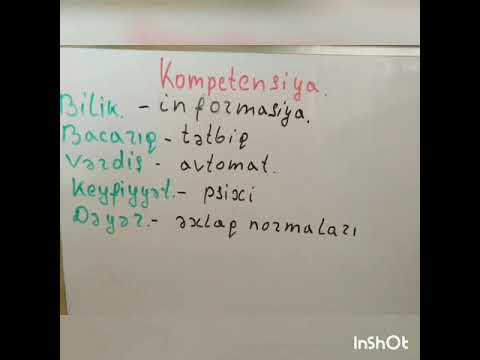 Kompetensiya.
Bilik. - informasiya.
Bacarıq - tətbiq
Vərdiş - avtomat.
Keyfiyyət. - psixi
Dəyər. - əxlaq normaları
InShOt